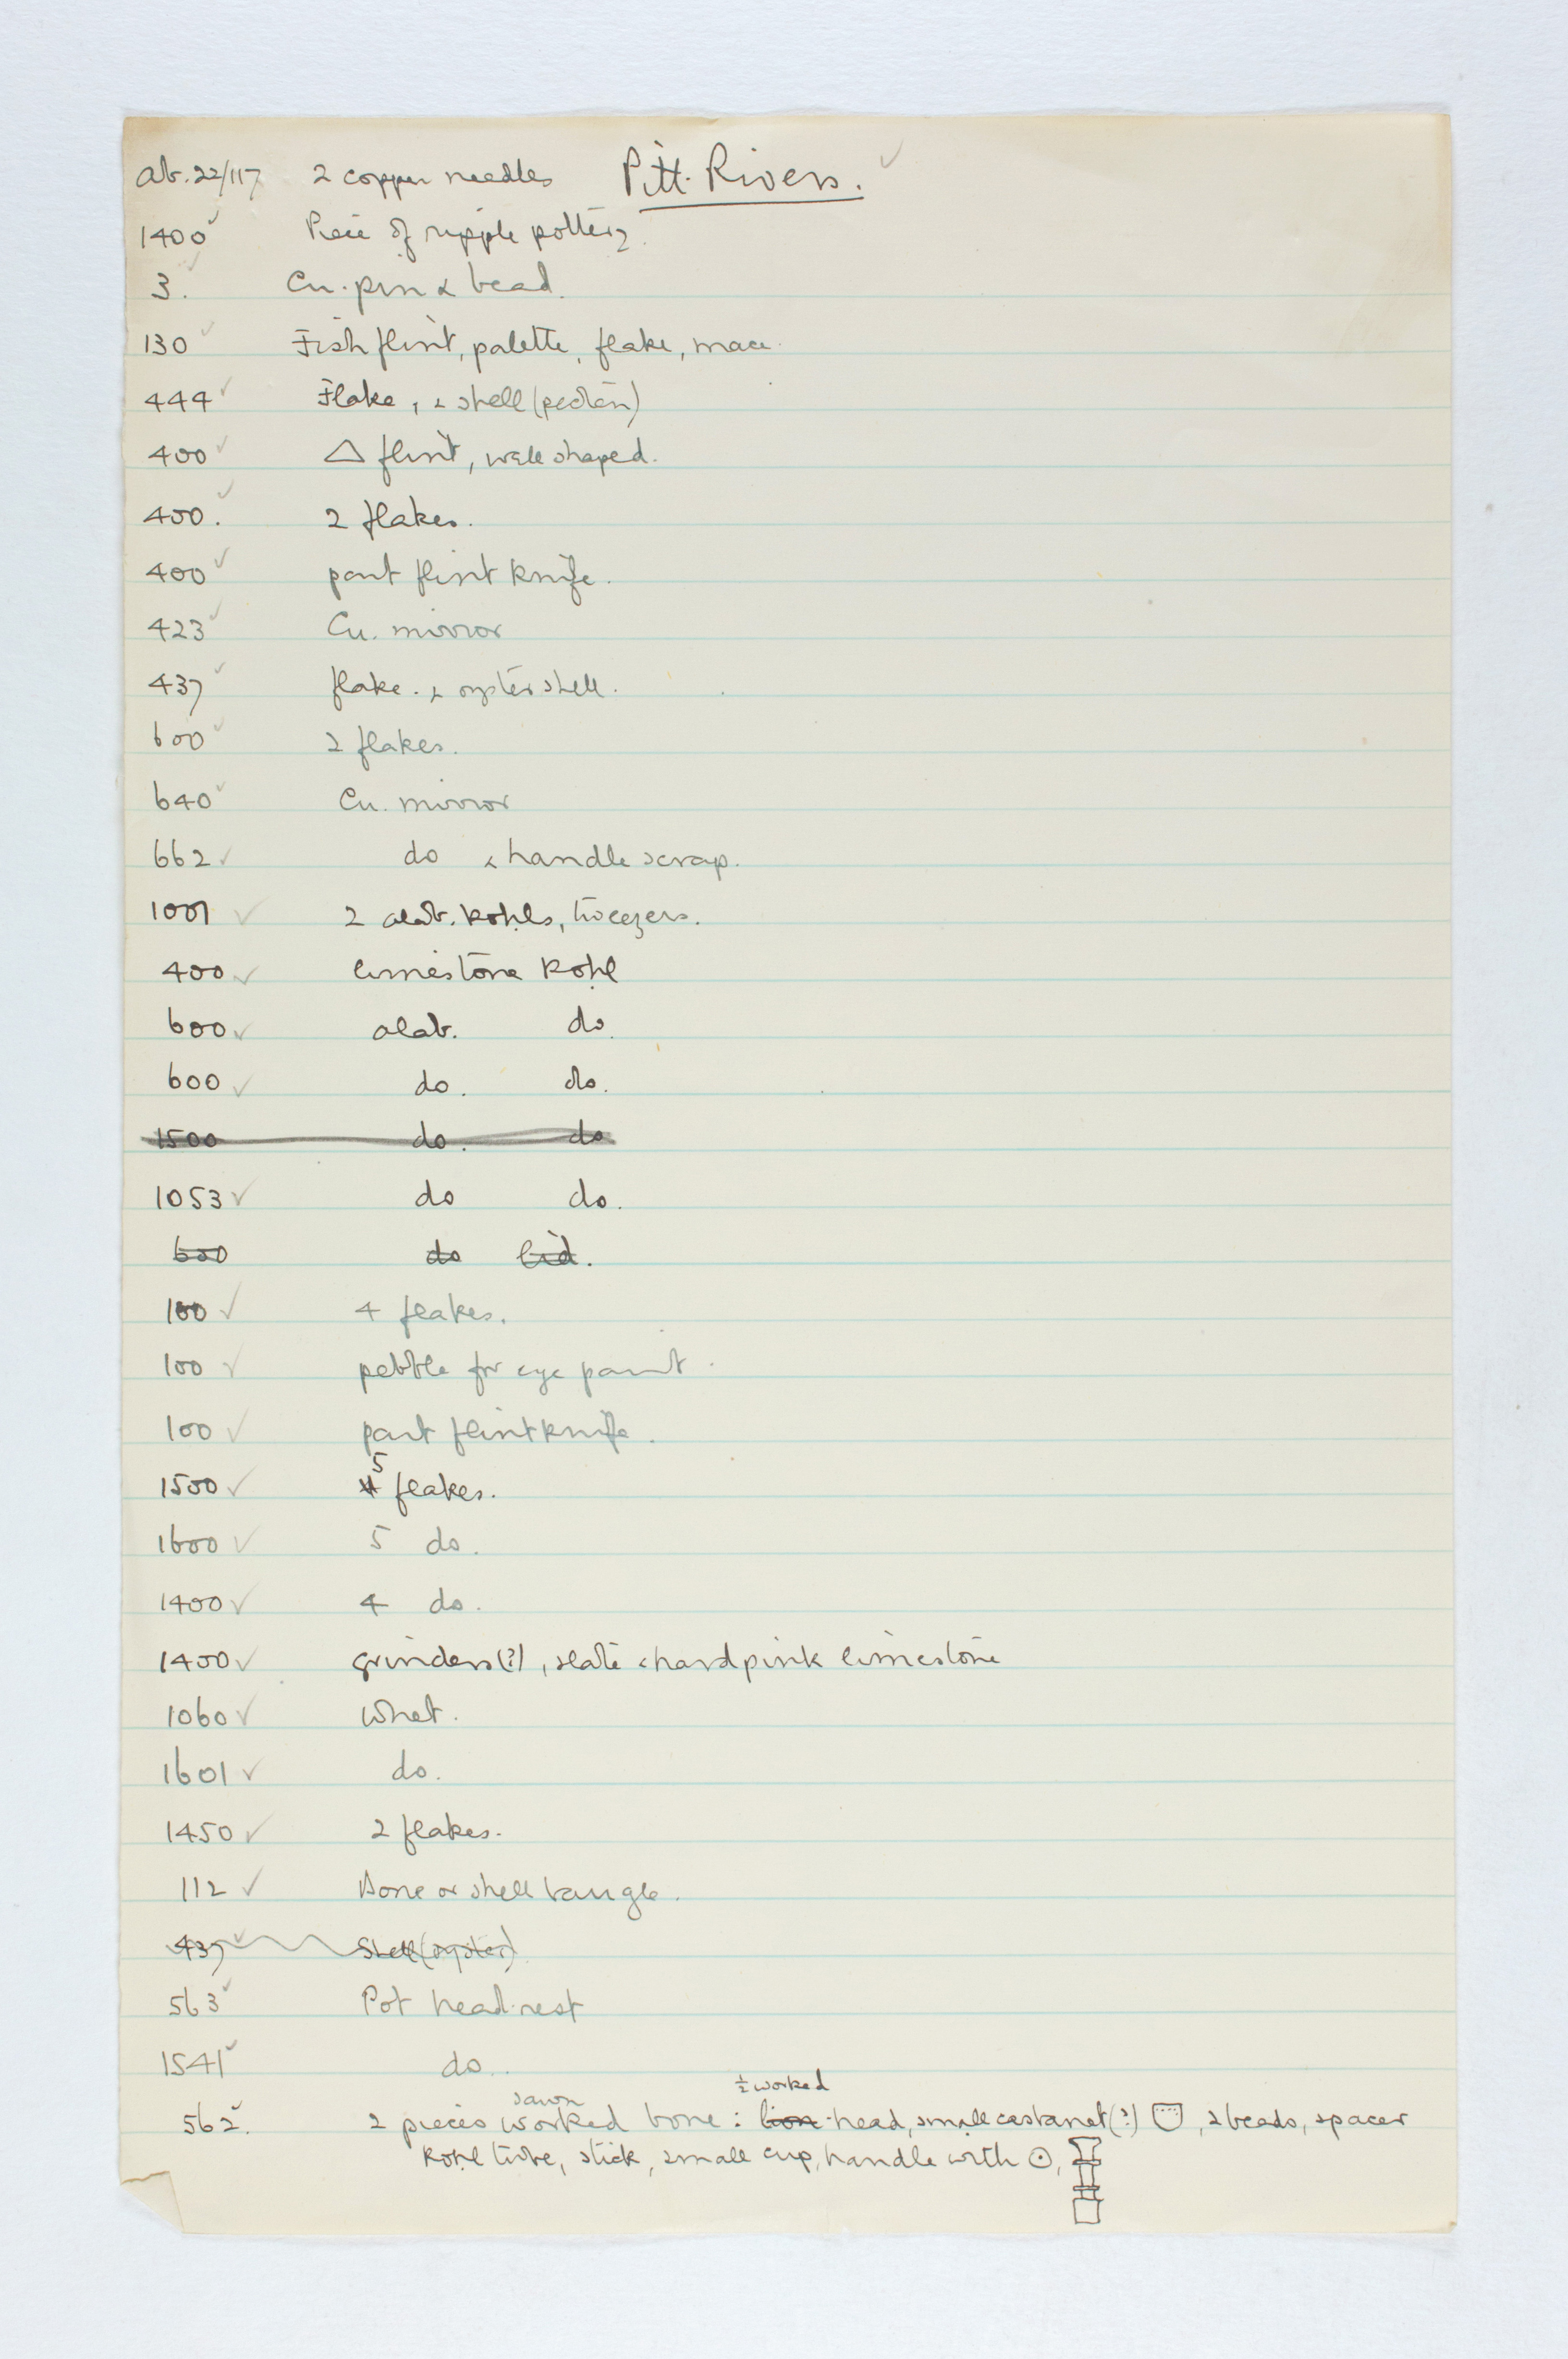 ab. 22/117 2 copper needles Pitt. Rivers. ✓
1400 ✓ Piece of ripple pottery.
3. ✓ Cu. pin & bead.
130 ✓ Fish flint, palette, flake, mace.
444 ✓ Flake, & shell (pecten)
400 ✓ △ flint, well shaped.
400. ✓ 2 flakes.
400 ✓ part flint knife.
423 ✓ Cu. mirror
437 ✓ flake. & oyster shell.
600 ✓ 2 flakes.
640 ✓ Cu. mirror
662 ✓ do & handle scrap.
1001 ✓ 2 alab. kohls, tweezers.
400 ✓ limestone kohl
600 ✓ alab. do.
600 ✓ do. do.
1500 do. do
1053 ✓ do do.
600 do lid.
100 ✓ 4 flakes.
100 ✓ pebble for eye paint.
100 ✓ part flint knife.
1500 ✓ 4 5 flakes.
1600 ✓ 5 do.
1400 ✓ 4 do.
1400 ✓ grinders(?), slate & hard pink limestone
1060 ✓ Whet.
1601 ✓ do.
1450 ✓ 2 flakes.
112 ✓ Bone or shell bangle.
437 ✓ Shell (oyster)
563 ✓ Pot head-rest
1541 ✓ do.
562. ✓ 2 pieces sawn worked bone: lion ½ worked head, small castanet(?), 2 beads, spacer
kohl tube, stick, small cup, handle with ⊙,